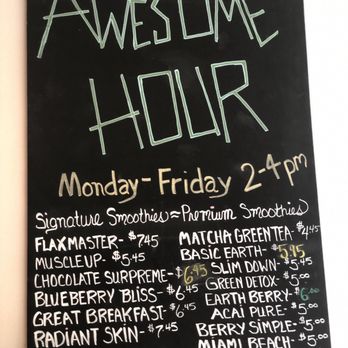 AWESOME
HOUR
Monday-Friday 2-4pm
Signature Smoothies = Premium Smoothies
FLAXMASTER- $7.45
MUSCLEUP- $5.45
CHOCOLATE SURPREME- $6.95
BLUEBERRY BLISS- $6.45
GREAT BREAKFAST- $6.45
RADIANT SKIN- $7.45
MATCHA GREENTEA- $4.45
BASIC EARTH- $5.95
SLIM DOWN- $5.45
GREEN DETOX- $5.00
EARTH BERRY- $6.00
ACAI PURE- $5.00
BERRY SIMPLE- $5.00
MIAMI BEACH- $5.00